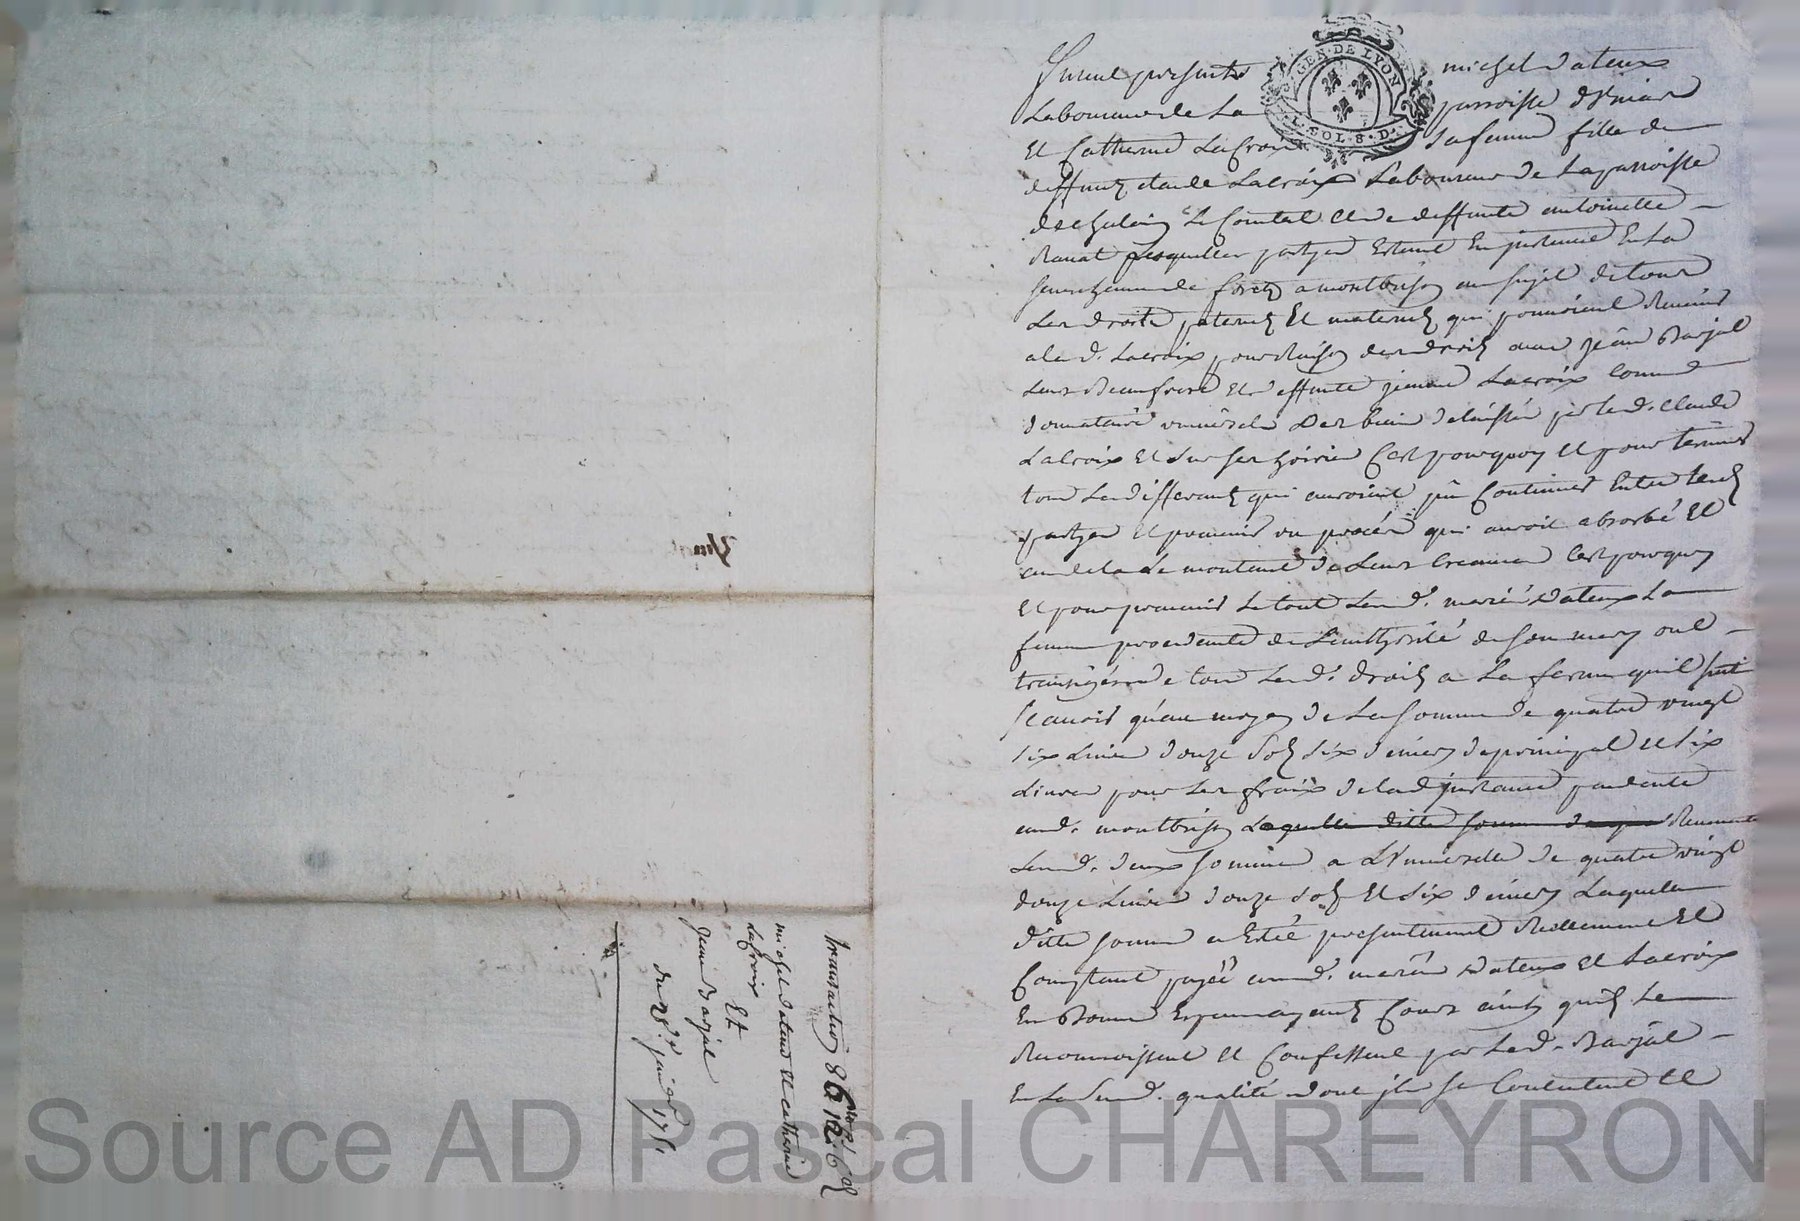 Furent presents michel dateux
Laboureur de La parroisse d'Uniao
Et Catherine LaCroix sa femme fille de
deffunt claude Lacroix Laboureur de La parroisse
de chalain Le Comtal et de deffunte antoinette
lesquelles partyes Estant En jnstance En La
senechaussée de forets a montbrison au sujet de tous
Les droits paternels Et maternels qui pouvoient
a la d. Lacroix pour Raison des droits avec jean Barjal
Leur Beaufrere Et deffunte jeanne Lacroix comme
donnataire universelle des biens delaissés par le d. claude
Lacroix Et sur ses hoiries C'est pourquoy Et pour terminer
tous Les differants qui auroient pû Continuer Entre Les d.
partyes Et prevenir un procés qui auroit absorbé Et
audela Le montant de Leurs creances C'est pourquoy
Et pour prevenir Le tout Les d. mariés dateux La
femme procedante de L'authorité de son mary ont
transigés de tous Les d. droits a La forme qu'il suit
scavoir qu'au moyen de La somme de quatre vingt
six Livres douze sols six deniers de principal et six
Livres pour Les frais de la d. jnstance pendante
aud. montbrison Laquelle ditte somme
Les d. deux sommes a L'universelle de quatre vingt
douze Livres douze sols Et six deniers Laquelle
ditte somme a Esté presentement Reellement Et
Comptant payée aux d. mariés dateux Et Lacroix
En Bonnes Especes ayant Cours ainsy qu'ils Le
Reconnoissent et Confessent par Le d. Barjal
En La susd. qualité dont jls se Contentent Et
GEN. DE LYON
SOL. 8. D.
transaction 86 12. 6
michel dateux et catherine
LaCroix
Et
jean Barjal
du 28e janvier 1751
Source AD Pascal CHAREYRON